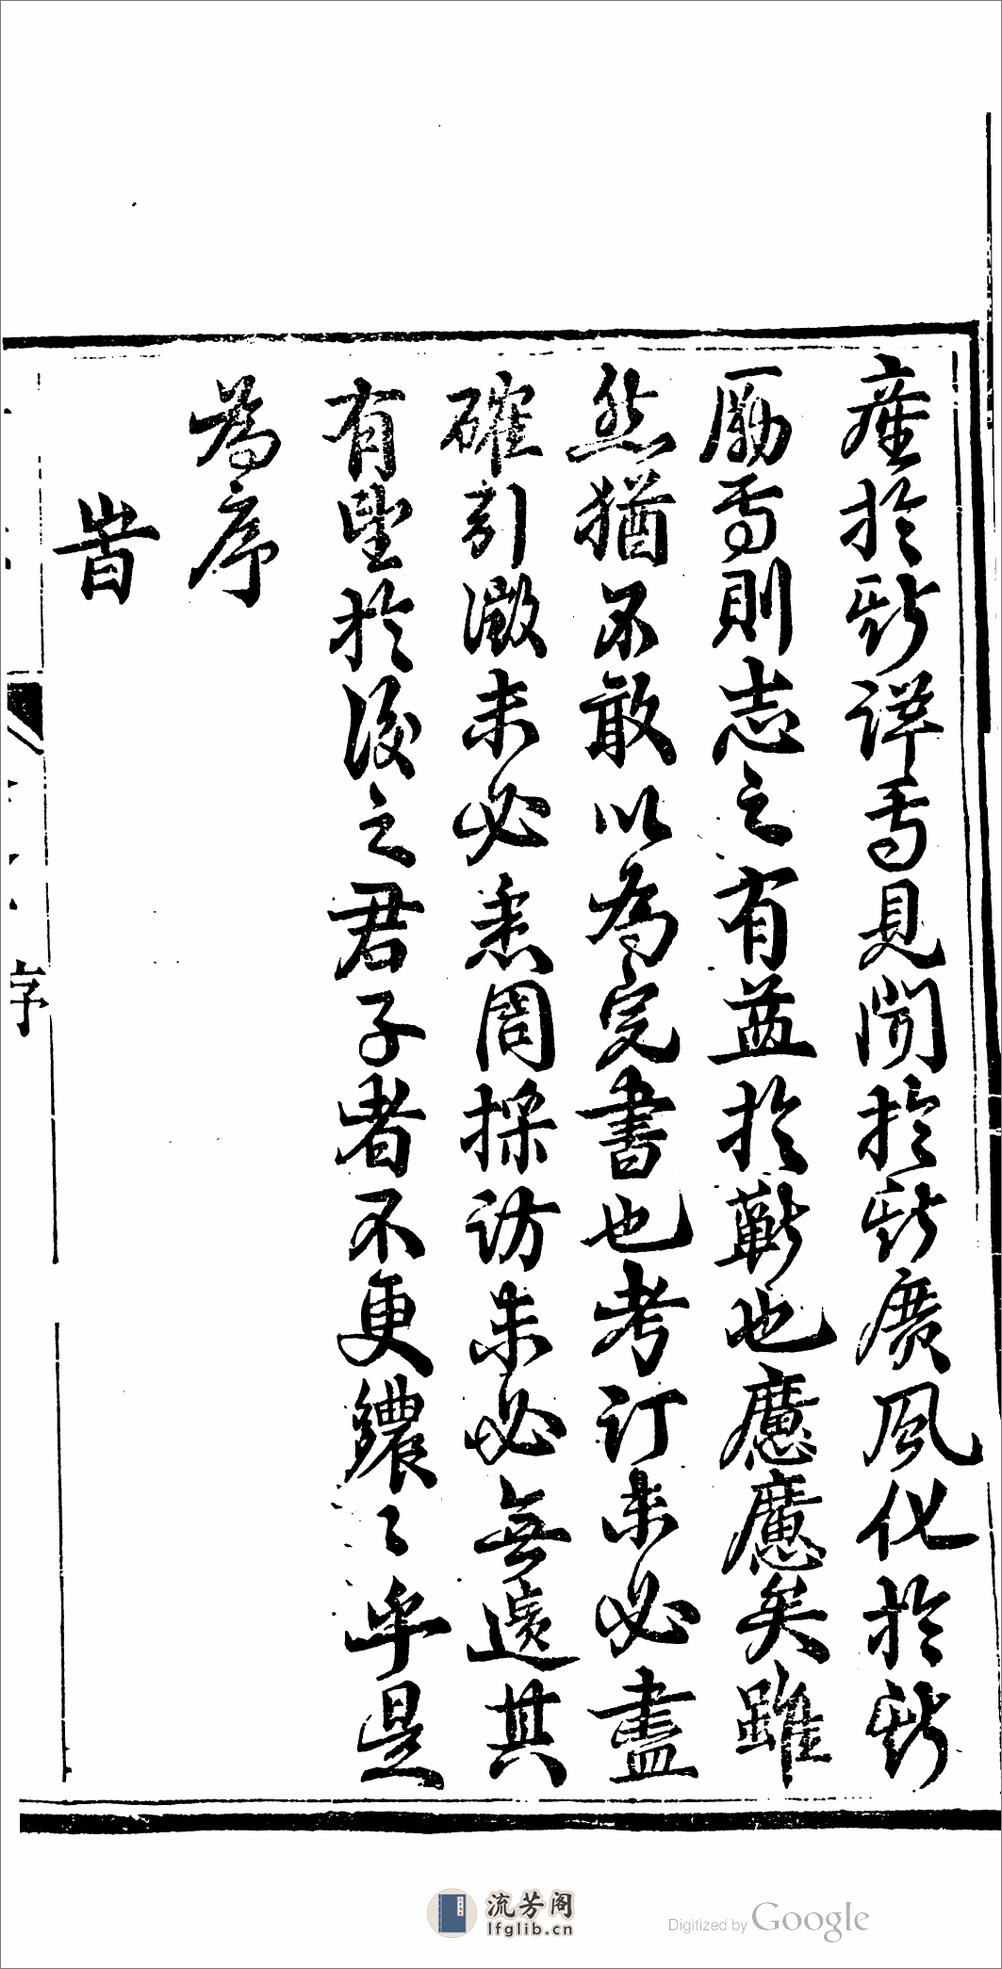 產於斯詳焉見聞於斯廣風化於斯
勵焉則志之有益於蘄也應應矣雖
然猶不敢以為完書也考訂未必盡
確引徵未必悉周採訪未必無遺其
有望於後之君子者不更纚〻乎是
為序
旹
序
流芳阁
lfglib.cn
Digitized by Google